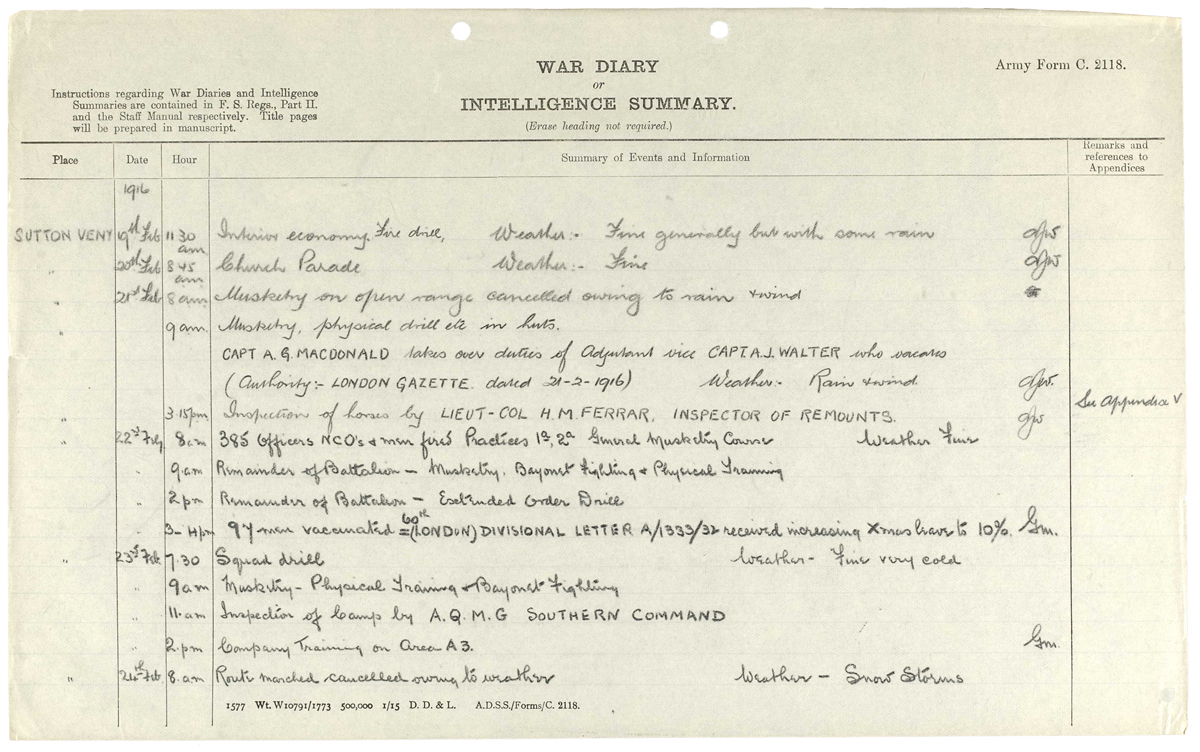 WAR DIARY
or
INTELLIGENCE SUMMARY.
(Erase heading not required.)
Army Form C. 2118.
Instructions regarding War Diaries and Intelligence
Summaries are contained in F. S. Regs., Part II.
and the Staff Manual respectively. Title pages
will be prepared in manuscript.
Place Date Hour Summary of Events and Information Remarks and references to Appendices
1916
SUTTON VENY 19th Feb 11 30 am Interior economy. Fire drill, Weather:- Fine generally but with some rain
" 20th Feb 8 45 am Church Parade Weather:- Fine
" 21st Feb 8 am Musketry on open range cancelled owing to rain + wind
" 9 am. Musketry, physical drill etc in huts.
CAPT A. G. MACDONALD takes over duties of Adjutant vice CAPT A.J. WALTER who vacates
(Authority:- LONDON GAZETTE. dated 21-2-1916) Weather:- Rain + wind.
" 3.15pm Inspection of horses by LIEUT-COL H.M. FERRAR, INSPECTOR OF REMOUNTS. See Appendix V
" 22nd Feby 8 am 385 Officers NCO's + men fired Practices 1a, 2a General Musketry Course Weather Fine
" 9 am Remainder of Battalion - Musketry. Bayonet Fighting + Physical Training
" 2 pm Remainder of Battalion - Extended Order Drill
" 3-4pm 97 men vaccinated = 60th (LONDON) DIVISIONAL LETTER A/1333/32 received increasing Xmas leave to 10%. Gm.
" 23rd Feb. 7.30 Squad drill Weather- Fine very cold
" 9 am Musketry- Physical Training + Bayonet Fighting
" 11.am Inspection of Camp by A.Q.M.G SOUTHERN COMMAND
" 2.pm Company Training on Area A3. Gm.
" 24th Feb. 8.am Route marched cancelled owing to weather Weather - Snow Storms
1577 Wt. W10791/1773 500,000 1/15 D. D. & L. A.D.S.S./Forms/C. 2118.